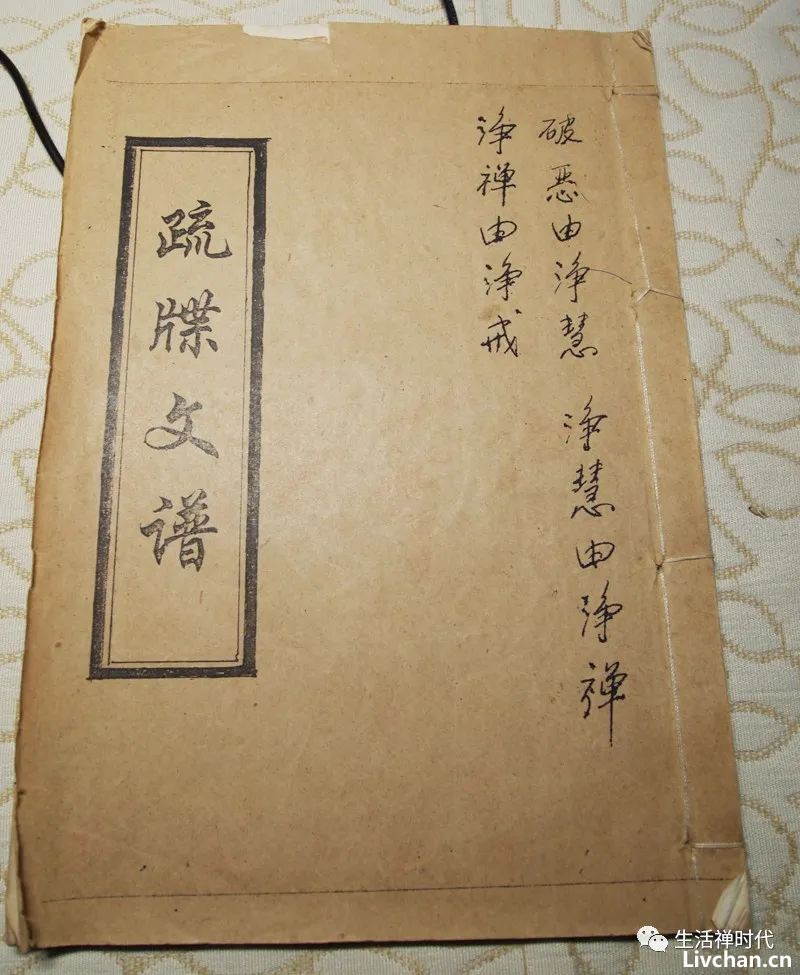 破恶由浄慧 浄慧由浄禅
浄禅由浄戒
疏牒文谱
生活禅时代
Livchan.cn